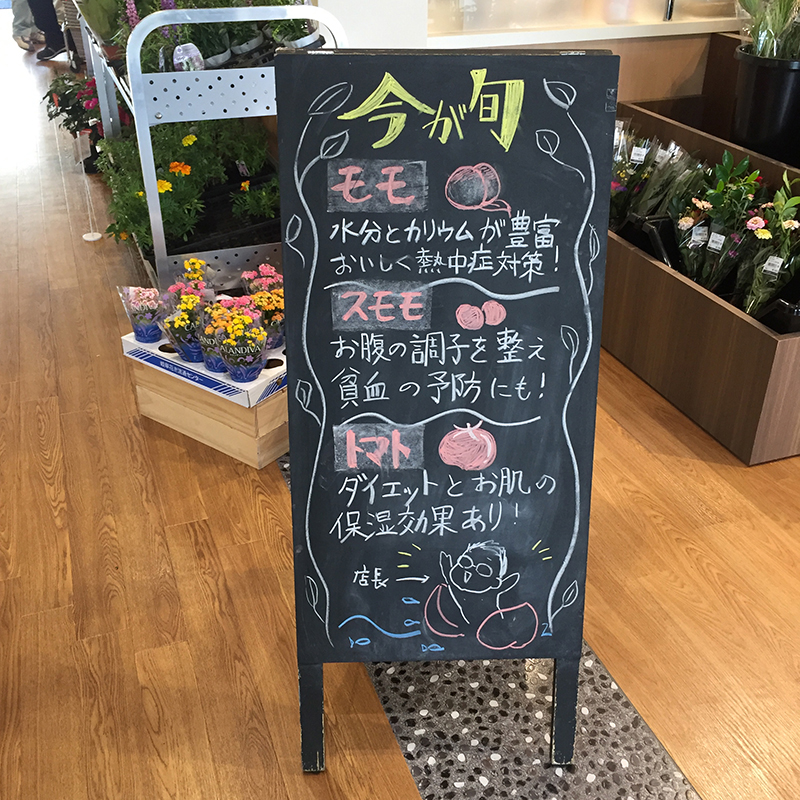 今が旬
モモ
水分とカリウムが豊富
おいしく熱中症対策!
スモモ
お腹の調子を整え
貧血の予防にも!
トマト
ダイエットとお肌の
保湿効果あり!
店長→